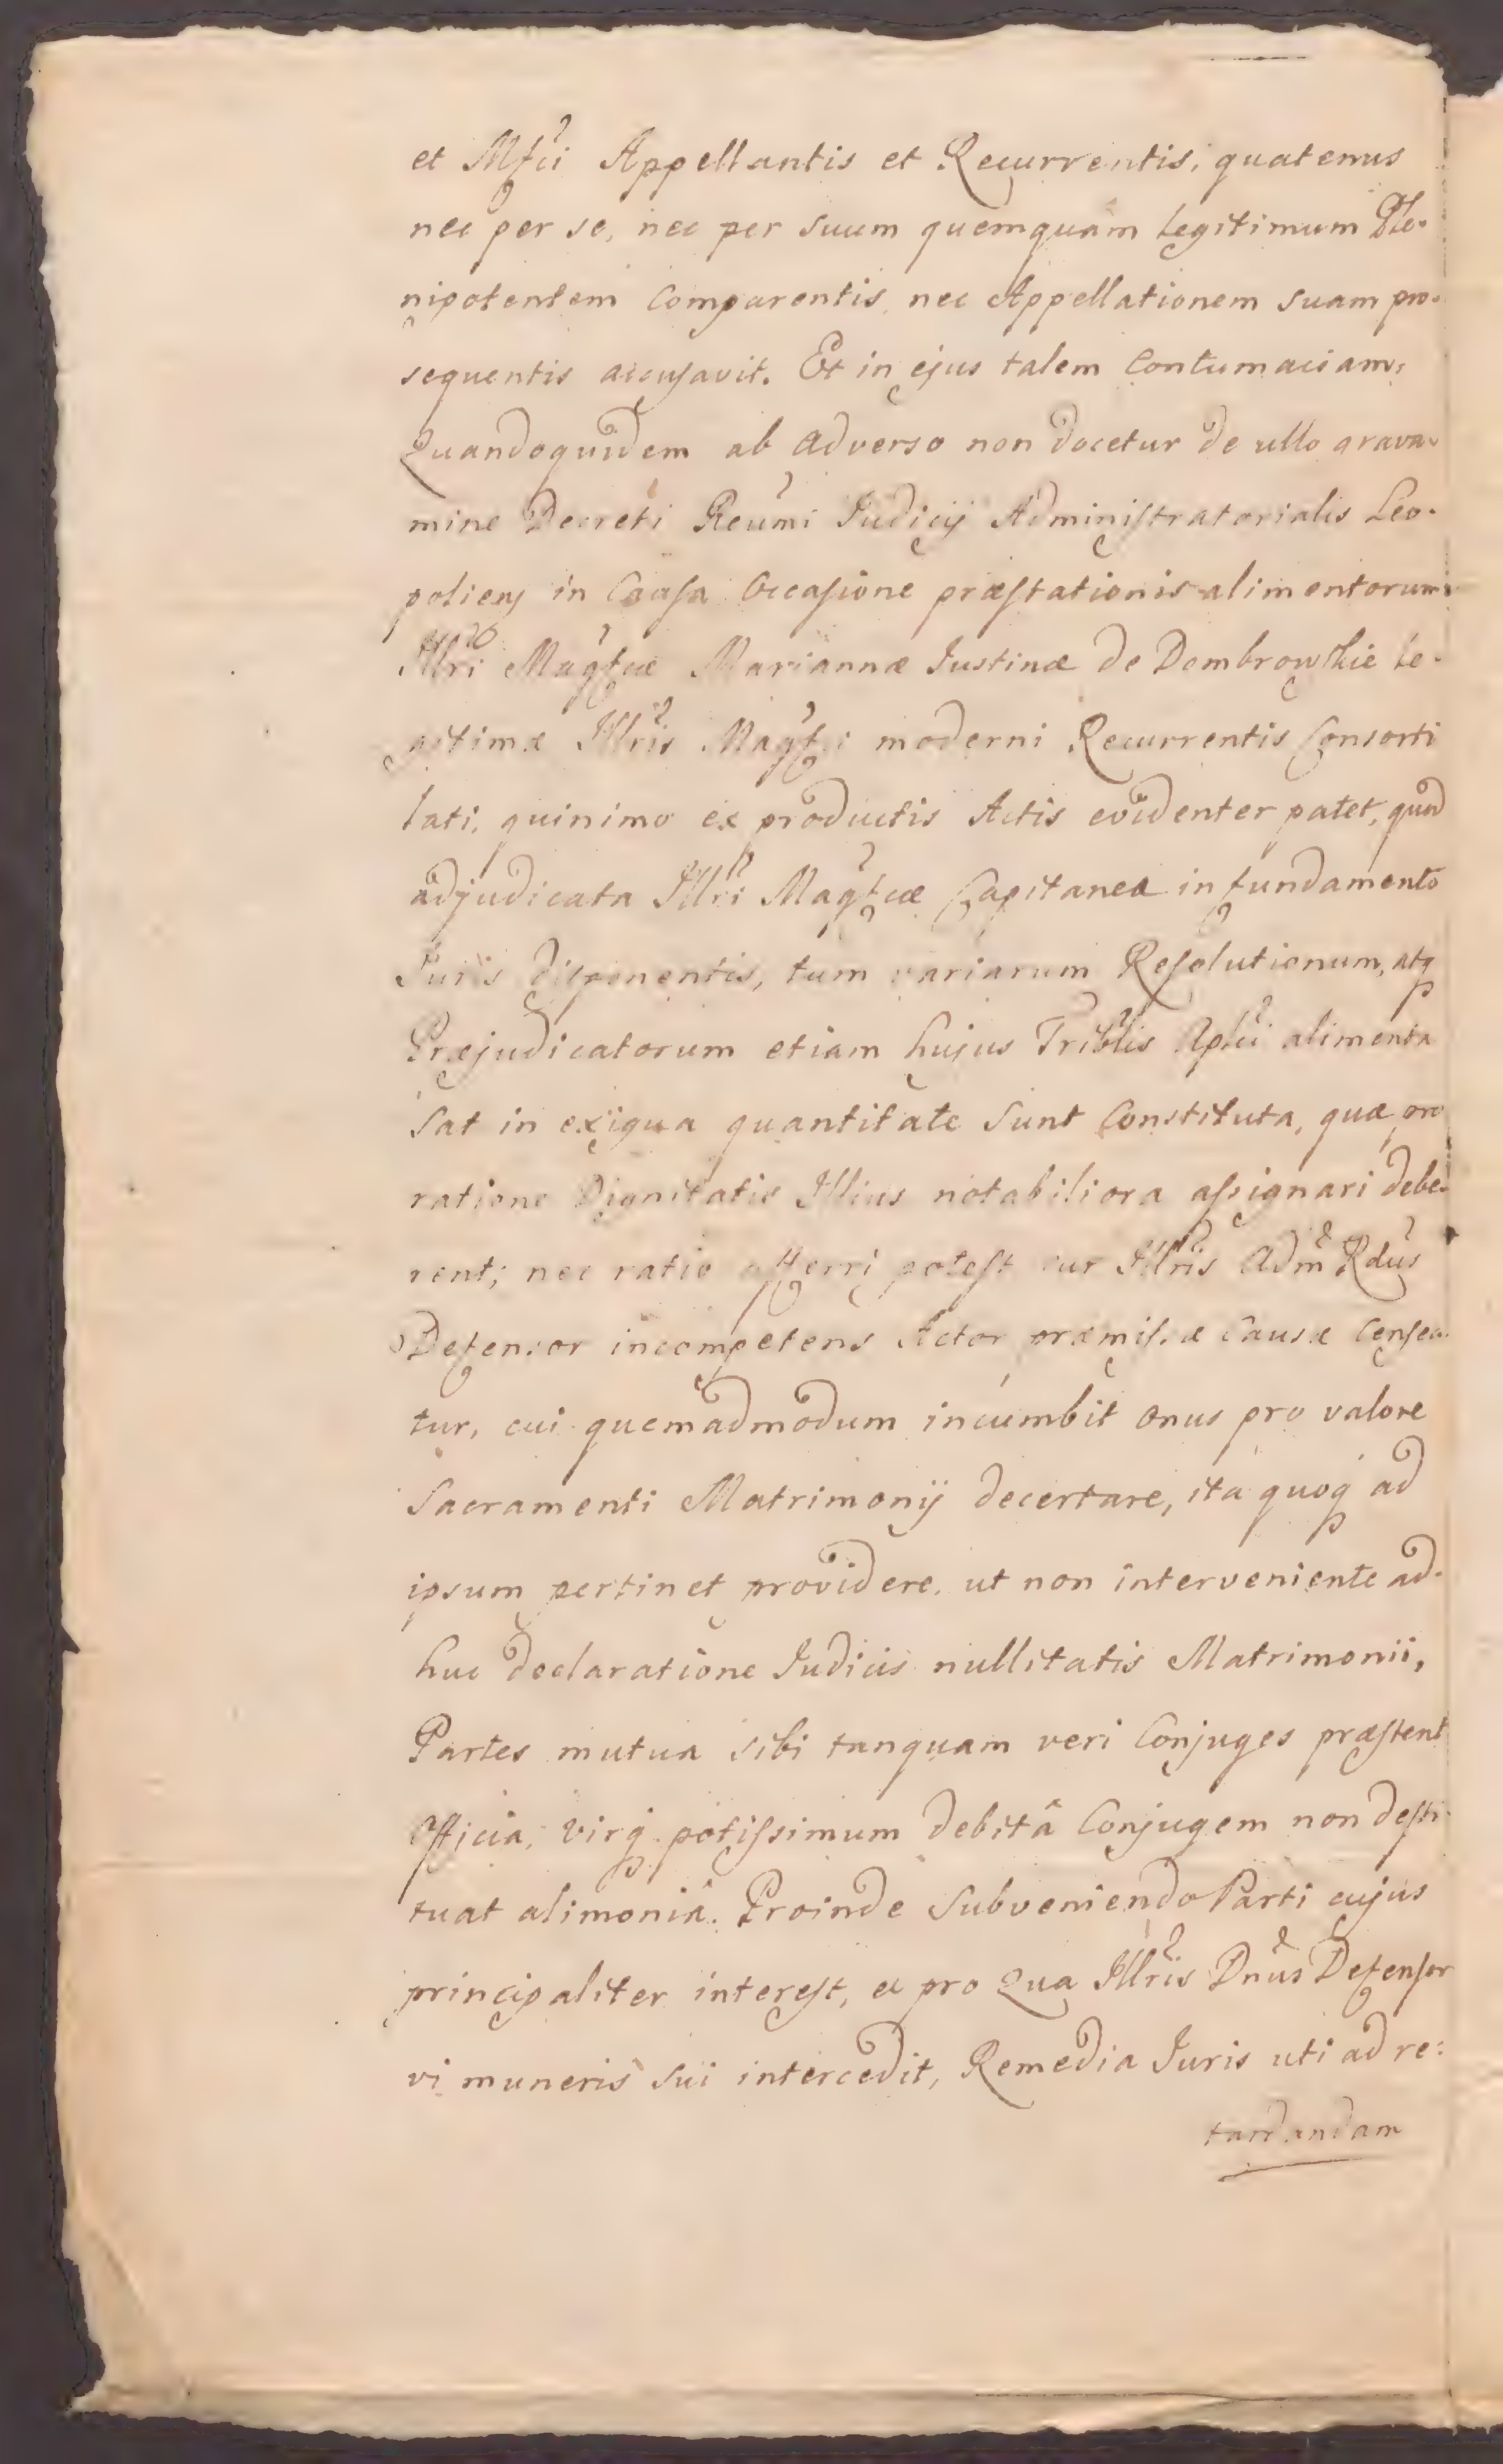 et Mfci Appellantis et Recurrentis, quatenus
nec per se, nec per suum quemquam legitimum Ple-
nipotentem Comparentis, nec Appellationem suam pro-
sequentis accusavit. Et in ejus talem Contumaciam,
Quandoquidem ab adverso non docetur de ullo grava-
mine Decreti Reumi Iudicij Administratorialis Leo-
poliens in Causa Occasione præstationis alimentorum
Illri Magfcæ Mariannæ Iustinæ de Dombrowskie le-
gitimæ Illris Magfci moderni Recurrentis Consorti
lati, quinimo ex productis Actis evidenter patet, quod
adjudicata Illri Magfcæ Capitanea in fundamento
Iuris disponentis, tum variarum Resolutionum, atq
Præjudicatorum etiam hujus Triblis Aplici alimenta
Sat in exigua quantitate Sunt Constituta, quæ pro
ratione Dignitatis Illius notabiliora assignari debe-
rent; nec ratio afferri potest cur Illris Adm Rdus
Defensor incompetens Actor præmissæ Causæ Censea-
tur, cui quemadmodum incumbit onus pro valore
Sacramenti Matrimonij decertare, ita quoq ad
ipsum pertinet providere, ut non interveniente ad-
huc declaratione Iudicis nullitatis Matrimonii,
Partes mutua sibi tanquam veri Conjuges præstent
Officia, virq potissimum debitâ Conjugem non desti-
tuat alimoniâ. Proinde Subveniendo Parti cujus
principaliter interest, et pro Qua Illris Dnus Defensor
vi muneris Sui intercedit, Remedia Iuris uti ad re:
tardandam